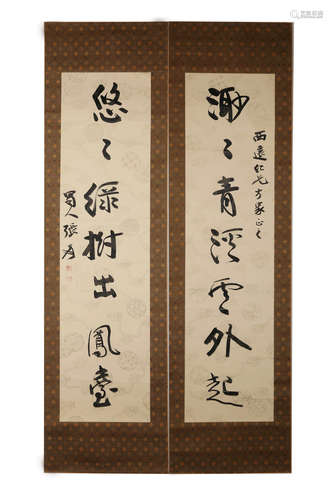 西遠仁兄方家正之
渺〻青溪雲外起
悠〻綠樹出鳳臺
蜀人張爰